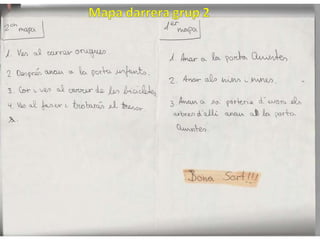 Mapa darrera grup 2
2on mapa
1. Ves al carrer origues.
2. Després anau a la porta infants.
3. Cor i ves al carrer de les bicicletes
4. Ves al facer i trobaràs el tresor
1er mapa
1. Anar a la porta Quinston
2. Anar als nins i nines.
3. Anau a sa porteria d'
els
arbres d'allí anau a la porta
Quinston.
Bona Sort!!!